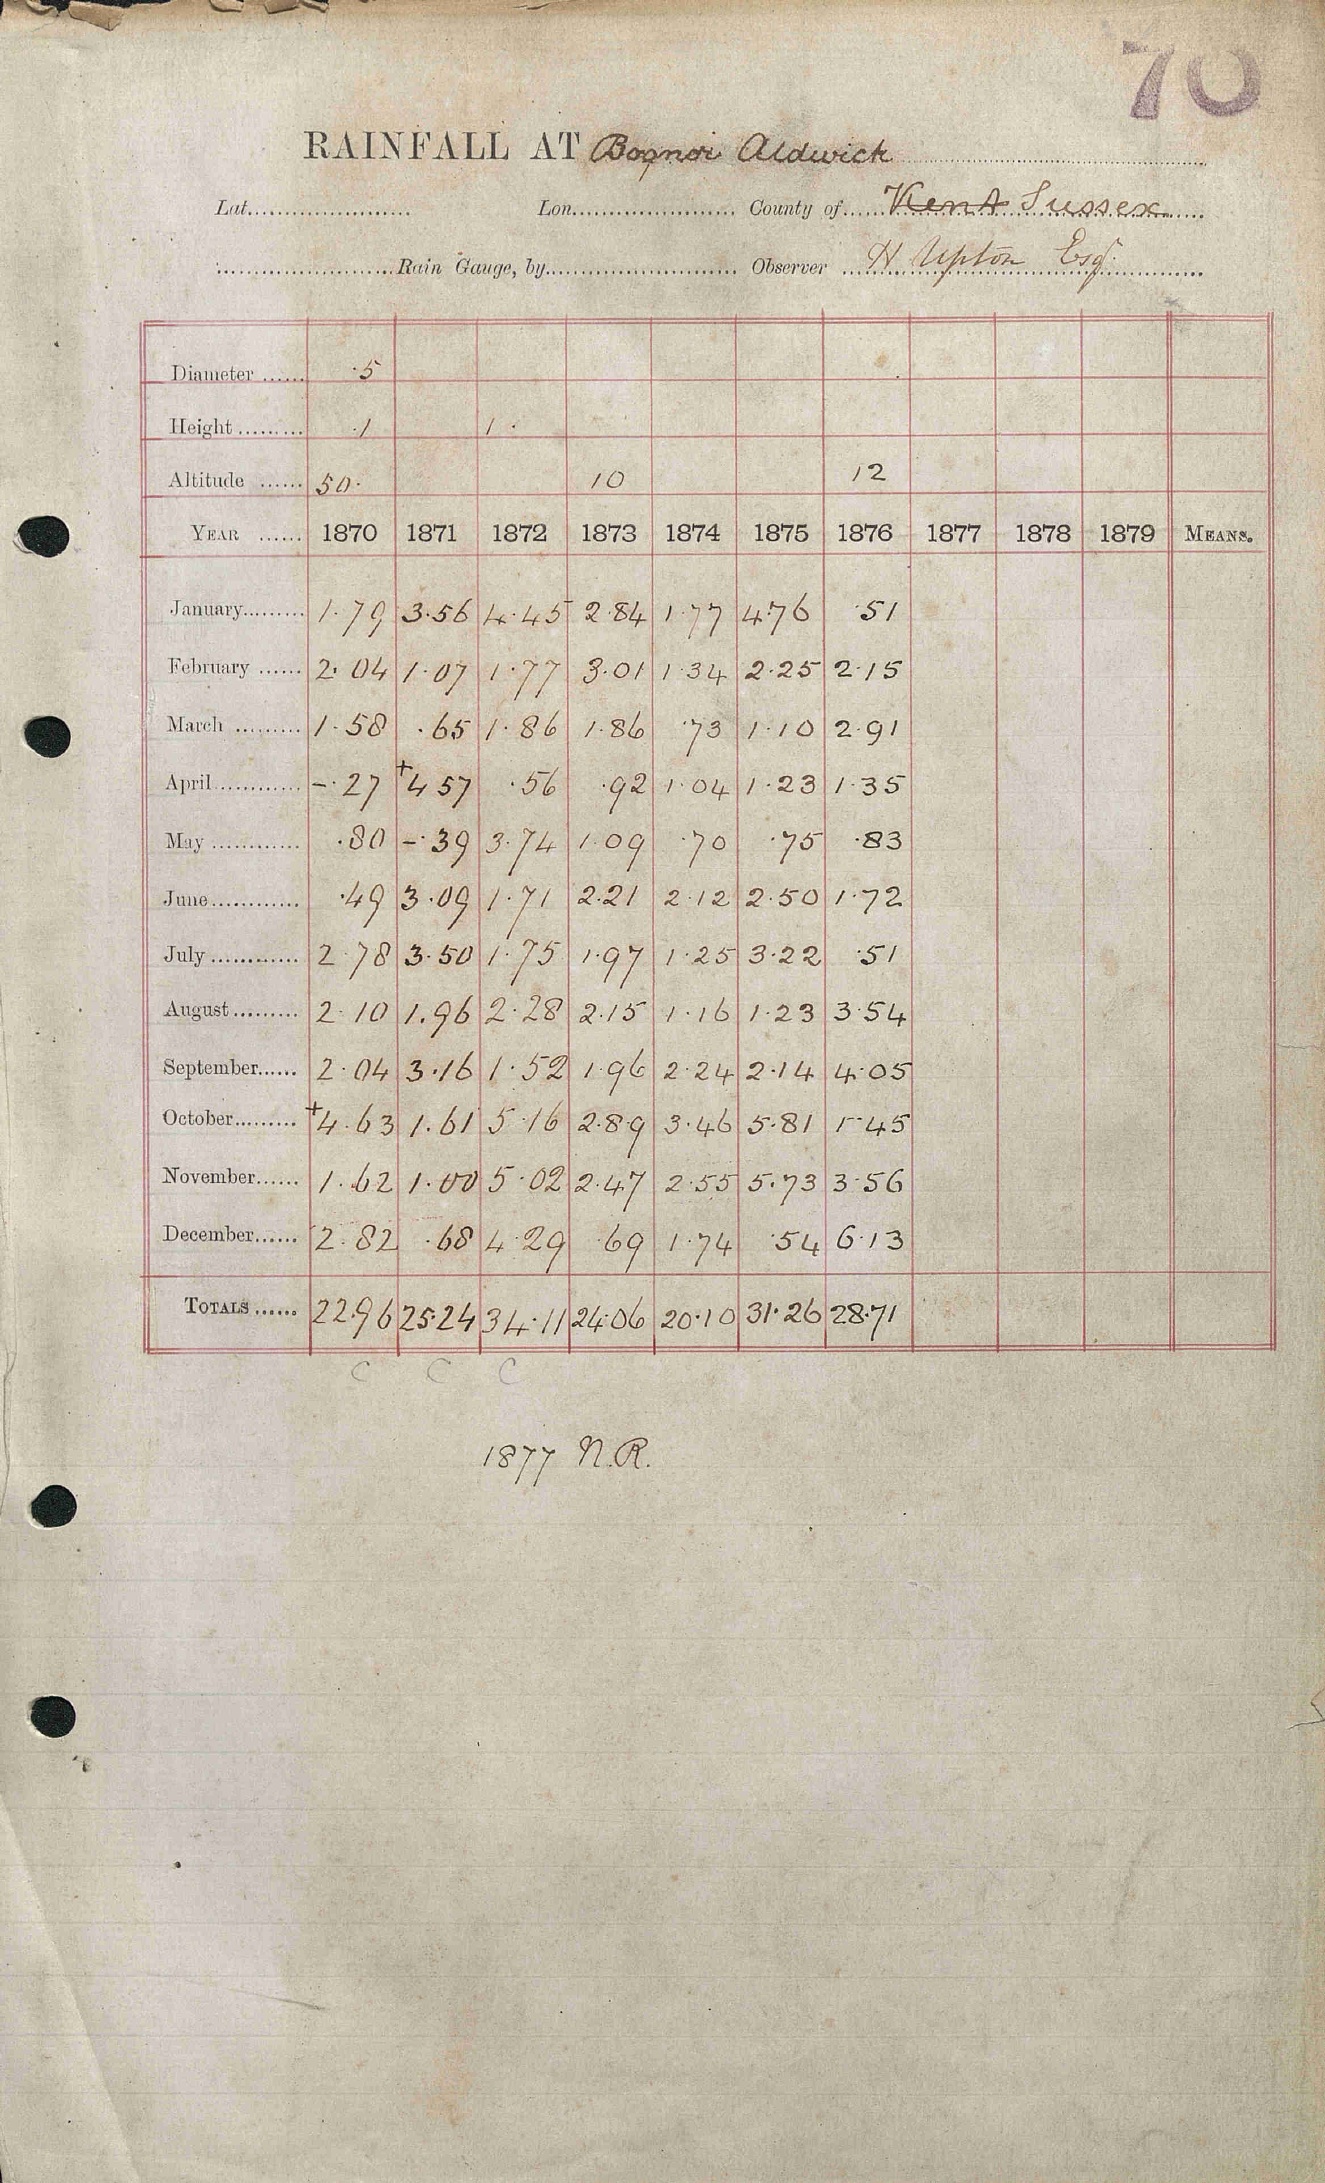 70
RAINFALL AT Bognor Aldwick
Lat. Lon. County of Kent Sussex
Rain Gauge, by Observer H Upton Esq.
Diameter ·5
Height ·1 1·
Altitude 50· 10 12
YEAR 1870 1871 1872 1873 1874 1875 1876 1877 1878 1879 MEANS.
January 1·79 3·56 4·45 2·84 1·77 4·76 ·51
February 2·04 1·07 1·77 3·01 1·34 2·25 2·15
March 1·58 ·65 1·86 1·86 ·73 1·10 2·91
April -·27 +4 57 ·56 ·92 1·04 1·23 1·35
May ·80 -·39 3·74 1·09 ·70 ·75 ·83
June ·49 3·09 1·71 2·21 2·12 2·50 1·72
July 2·78 3·50 1·75 1·97 1·25 3·22 ·51
August 2·10 1.96 2·28 2·15 1·16 1·23 3·54
September 2·04 3·16 1·52 1·96 2·24 2·14 4·05
October +4·63 1.61 5·16 2·89 3·46 5·81 1·45
November 1·62 1·00 5·02 2·47 2·55 5·73 3·56
December 2·82 ·68 4·29 ·69 1·74 ·54 6·13
TOTALS 22·96 25·24 34·11 24·06 20·10 31·26 28·71
C C C
1877 N.R.